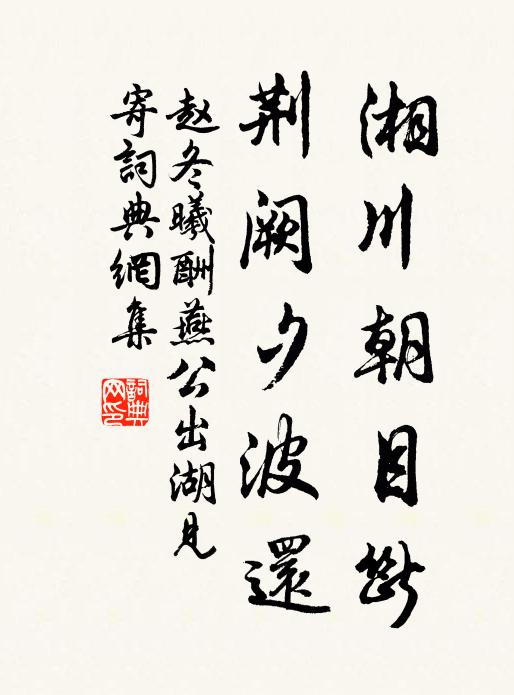 湘川朝目斷
荆阙夕波還
赵冬曦酬燕公出湖見
寄詞典網集
詞典
网印